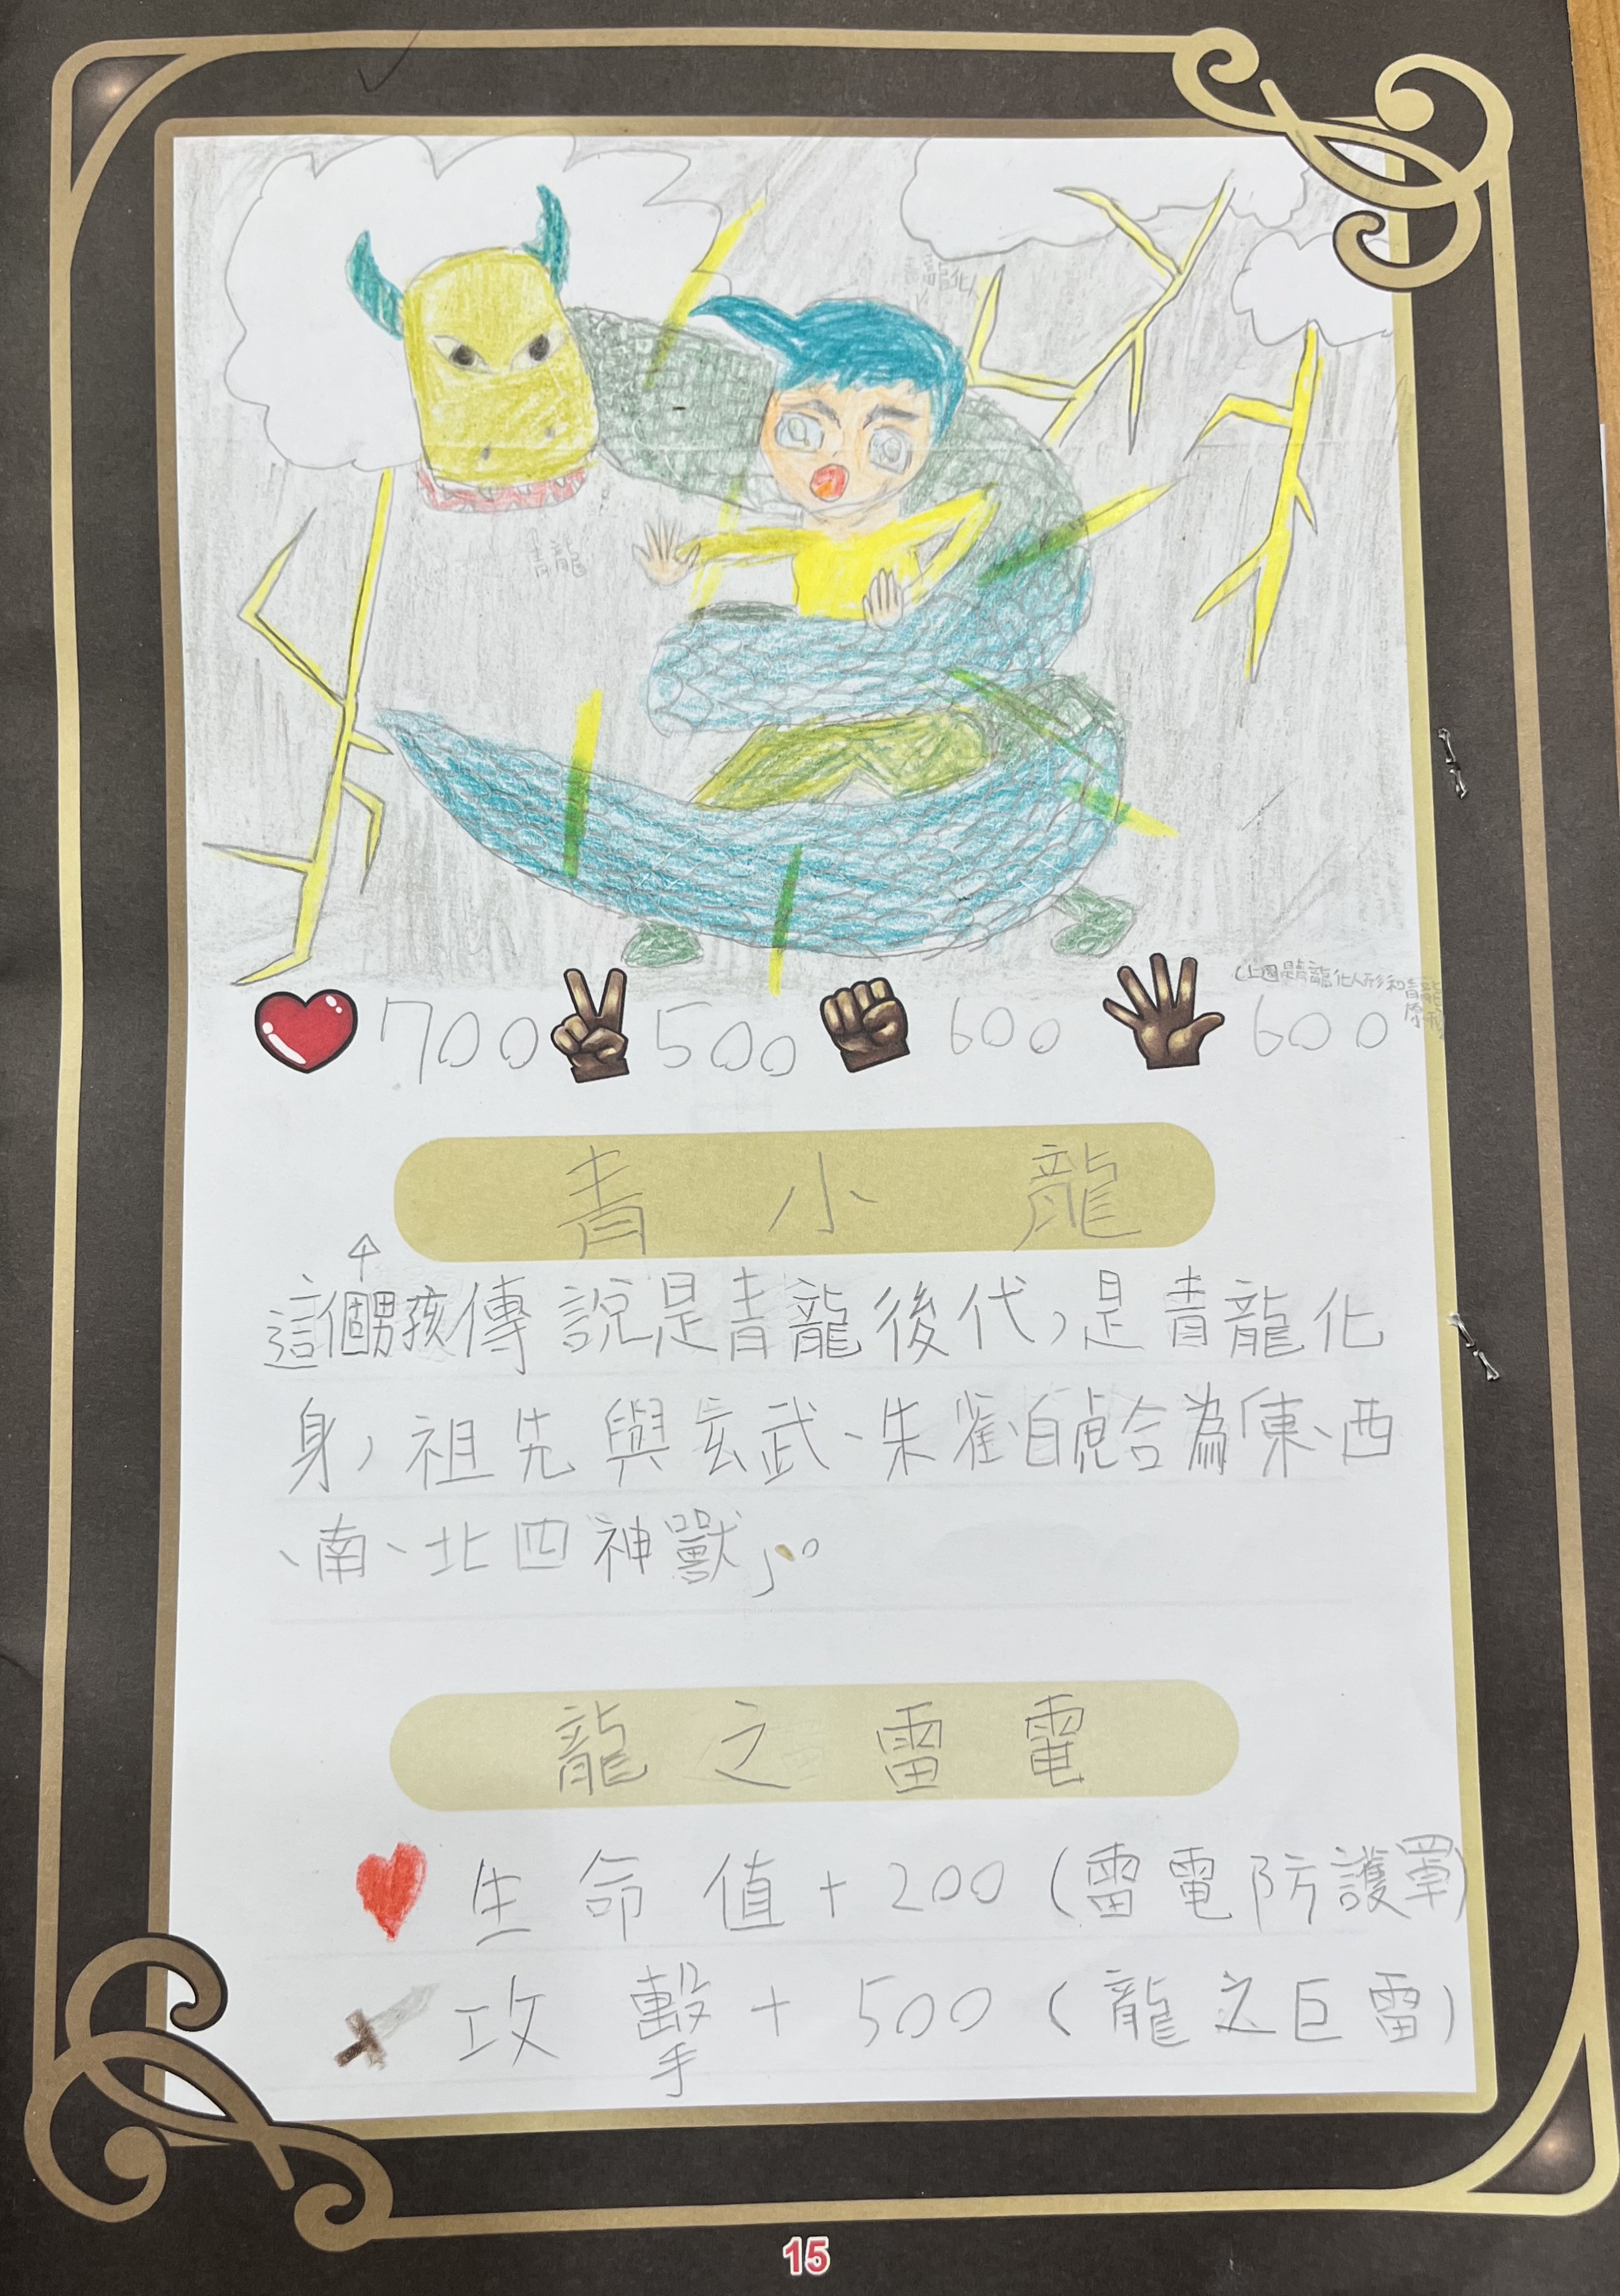 青龍化人
青龍
(上圖是青龍化人形和青龍
700 500 600 600
青小龍
這個男孩傳說是青龍後代,是青龍化
身,祖先與玄武、朱雀、白虎合為「東、西
、南、北四神獸」。
龍之雷電
生命值+200(雷電防護罩)
攻擊+500(龍之巨雷)
15